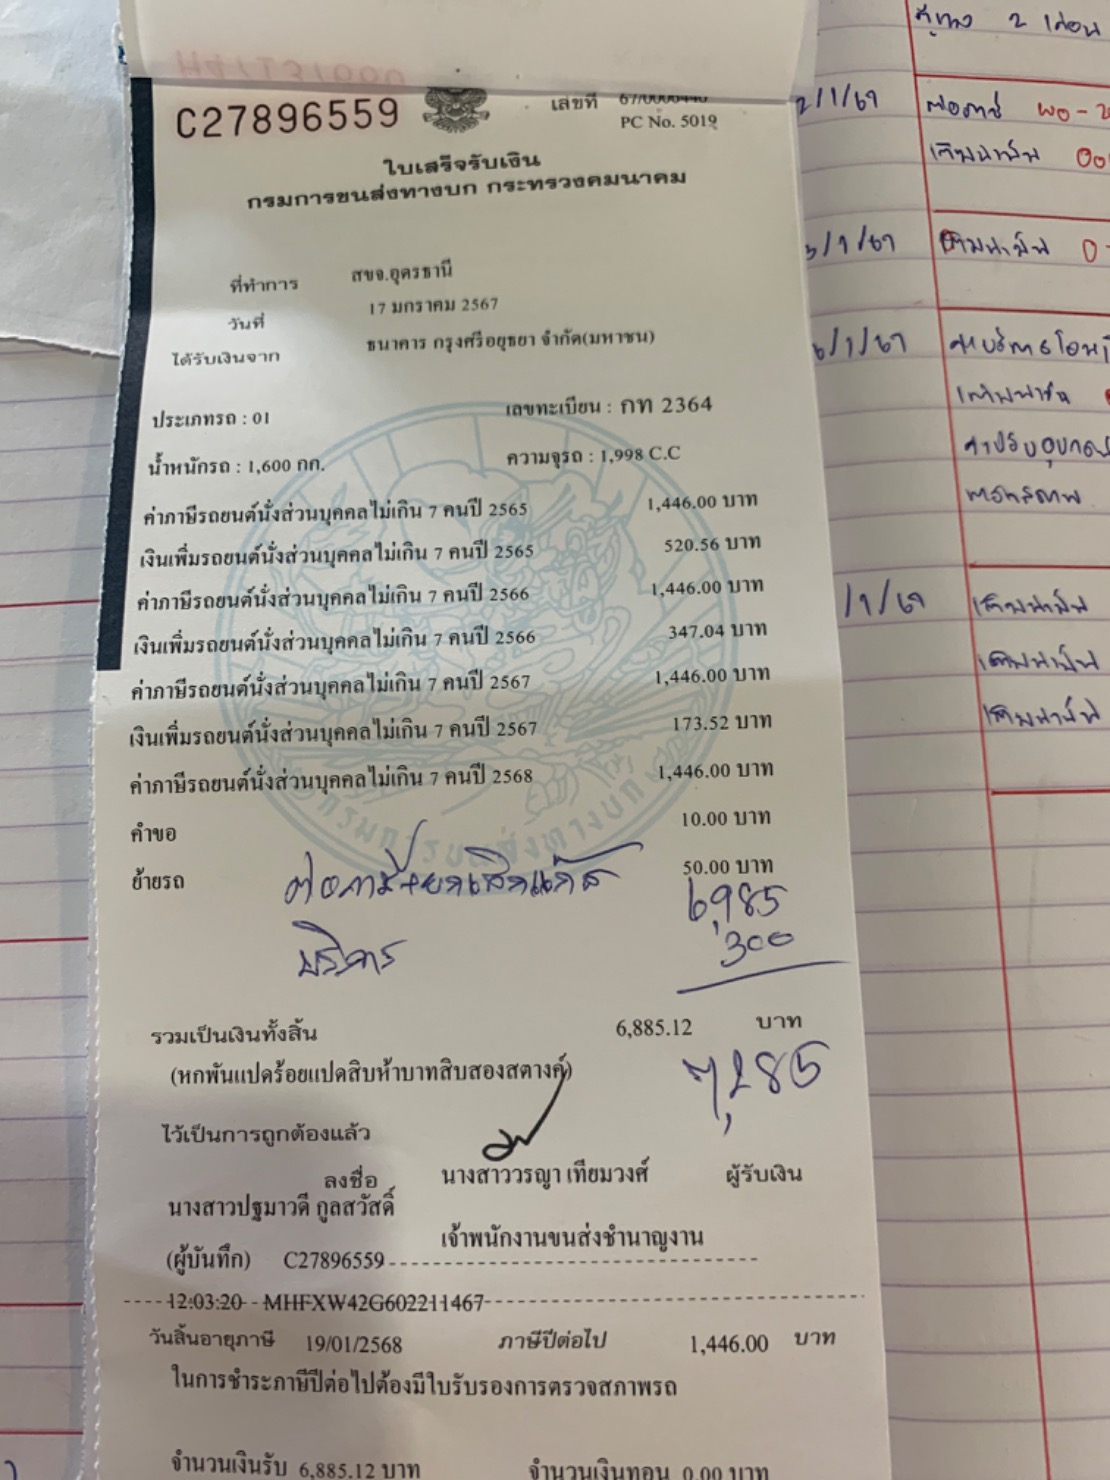 C27896559
เลขที่ 67/0006440
PC No. 5019
ใบเสร็จรับเงิน
กรมการขนส่งทางบก กระทรวงคมนาคม
ที่ทำการ สขจ.อุดรธานี
วันที่ 17 มกราคม 2567
ได้รับเงินจาก ธนาคาร กรุงศรีอยุธยา จำกัด(มหาชน)
ประเภทรถ : 01 เลขทะเบียน : กท 2364
น้ำหนักรถ : 1,600 กก. ความจุรถ : 1,998 C.C
ค่าภาษีรถยนต์นั่งส่วนบุคคลไม่เกิน 7 คนปี 2565 1,446.00 บาท
เงินเพิ่มรถยนต์นั่งส่วนบุคคลไม่เกิน 7 คนปี 2565 520.56 บาท
ค่าภาษีรถยนต์นั่งส่วนบุคคลไม่เกิน 7 คนปี 2566 1,446.00 บาท
เงินเพิ่มรถยนต์นั่งส่วนบุคคลไม่เกิน 7 คนปี 2566 347.04 บาท
ค่าภาษีรถยนต์นั่งส่วนบุคคลไม่เกิน 7 คนปี 2567 1,446.00 บาท
เงินเพิ่มรถยนต์นั่งส่วนบุคคลไม่เกิน 7 คนปี 2567 173.52 บาท
ค่าภาษีรถยนต์นั่งส่วนบุคคลไม่เกิน 7 คนปี 2568 1,446.00 บาท
คำขอ 10.00 บาท
ย้ายรถ 50.00 บาท
ต่อภาษี+ยกเลิกแก๊ส 6,985
บริการ 300
รวมเป็นเงินทั้งสิ้น 6,885.12 บาท
(หกพันแปดร้อยแปดสิบห้าบาทสิบสองสตางค์)
7,285
ไว้เป็นการถูกต้องแล้ว
ลงชื่อ นางสาววรญา เทียมวงศ์ ผู้รับเงิน
นางสาวปฐมาวดี กูลสวัสดิ์
เจ้าพนักงานขนส่งชำนาญงาน
(ผู้บันทึก) C27896559
12:03:20 MHFXW42G602211467
วันสิ้นอายุภาษี 19/01/2568 ภาษีปีต่อไป 1,446.00 บาท
ในการชำระภาษีปีต่อไปต้องมีใบรับรองการตรวจสภาพรถ
จำนวนเงินรับ 6,885.12 บาท จำนวนเงินทอน 0.00 บาท
กรมการขนส่งทางบก
2/1/67
เติมน้ำมัน
3/1/67 เติมน้ำมัน
6/1/67
ตรวจสภาพ
/1/67 เติมน้ำมัน
เติมน้ำมัน
เติมน้ำมัน